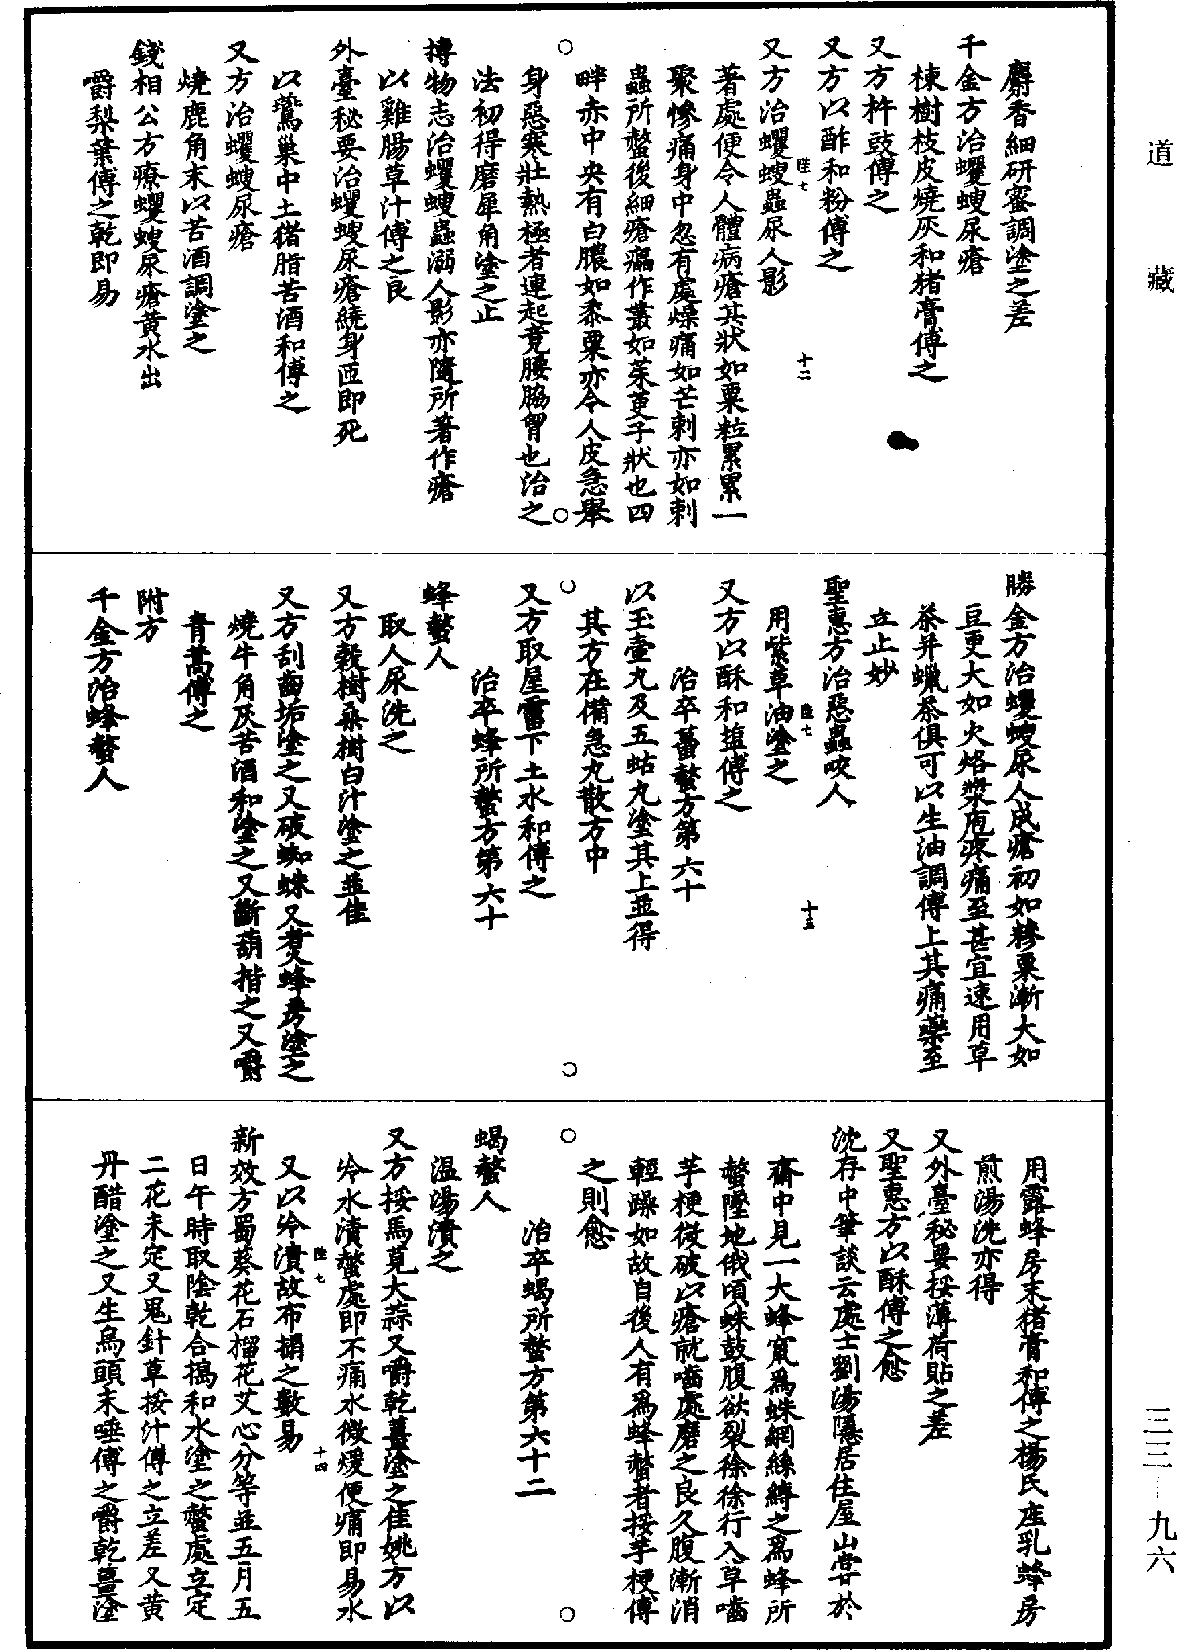 道藏
麝香細研蜜調塗之差
千金方治蠼螋尿瘡
楝樹枝皮燒灰和猪膏傅之
又方杵豉傅之
又方以酢和粉傅之
陞七
十二
又方治蠼螋蟲尿人影
著處便令人體病瘡其狀如粟粒累累一
聚慘痛身中忽有處燥痛如芒刺亦如刺
蟲所螫後細瘡瘺作叢如茱萸子狀也四
畔赤中央有白膿如黍粟亦令人皮急舉
身惡寒壯熱極者連起竟腰脇胷也治之
法初得磨犀角塗之止
博物志治蠼螋蟲溺人影亦隨所著作瘡
以雞腸草汁傅之良
外臺秘要治蠼螋尿瘡繞身匝即死
以鷰巢中土猪脂苦酒和傅之
又方治蠼螋尿瘡
燒鹿角末以苦酒調塗之
錢相公方療蠼螋尿瘡黄水出
嚼梨葉傅之乾即易
勝金方治蠼螋尿人成瘡初如糝粟漸大如
豆更大如火烙漿庖疼痛至甚宜速用草
茶并蠟茶俱可以生油調傅上其痛藥至
立止妙
聖惠方治惡蟲咬人
陞七
十三
用紫草油塗之
又方以酥和塩傅之
治卒蠆螫方第六十
以玉壷丸及五蛄丸塗其上並得
其方在備急丸散方中
又方取屋霤下土水和傅之
治卒蜂所螫方第六十
蜂螫人
取人尿洗之
又方榖樹桑樹白汁塗之並佳
又方刮齒垢塗之又破蜘蛛又煮蜂房塗之
燒牛角灰苦酒和塗之又斷葫揩之又嚼
青蒿傅之
附方
千金方治蜂螫人
用露蜂房末猪膏和傅之楊氏産乳蜂房
煎湯洗亦得
又外臺秘要挼薄荷貼之差
又聖惠方以酥傅之愈
沈存中筆談云處士劉湯隱居住屋山嘗於
齋中見一大蜂窠爲蛛網絲縛之爲蜂所
螫墜地俄頃蛛鼓腹欲裂徐徐行入草嚙
芋梗微破以瘡就嚙處磨之良久腹漸消
輕躁如故自後人有爲蜂螫者挼芋梗傅
之則愈
治卒蝎所螫方第六十二
蝎螫人
温湯漬之
又方挼馬莧大蒜又嚼乾薑塗之佳姚方以
冷水漬螫處即不痛水微煖便痛即易水
陞七
十四
又以冷漬故布搨之數易
新效方蜀葵花石榴花艾心分等並五月五
日午時取陰乾合搗和水塗之螫處立定
二花未定又鬼針草挼汁傅之立差又黄
丹醋塗之又生烏頭末唾傅之嚼乾薑塗
三三—九六